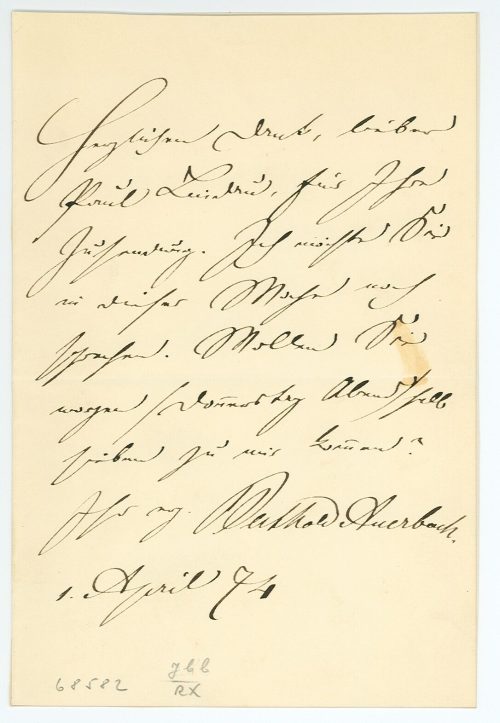 Herzlichen Dank, lieber
Paul Lindau, für Ihre
Zusendung. Ich möchte Sie
in dieser Woche noch
sprechen. Wollen Sie
morgen (Donnerstag Abend) halb
sieben zu mir kommen?
Ihr erg. Berthold Auerbach.
1. April 74
68582
RX